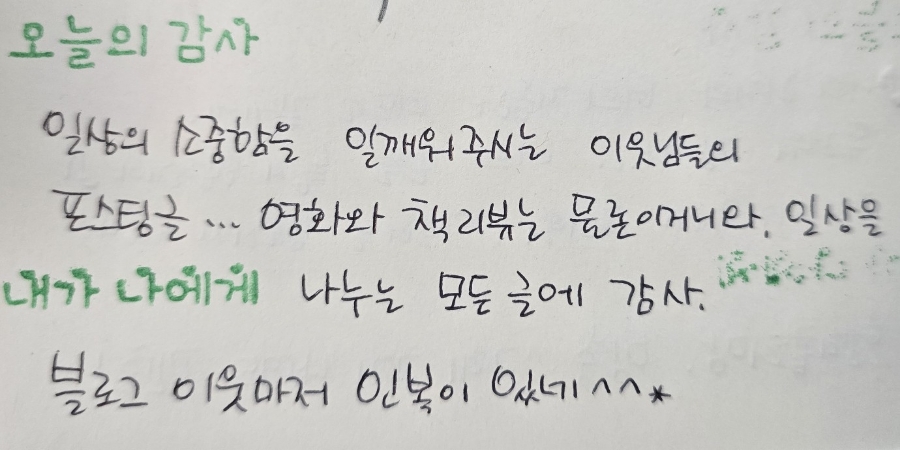 오늘의 감사
일상의 소중함을 일깨워주시는 이웃님들의
포스팅글... 영화와 책리뷰는 물론이거니와, 일상을
내가 나에게 나누는 모든 글에 감사.
블로그 이웃마저 인복이 있네^^*